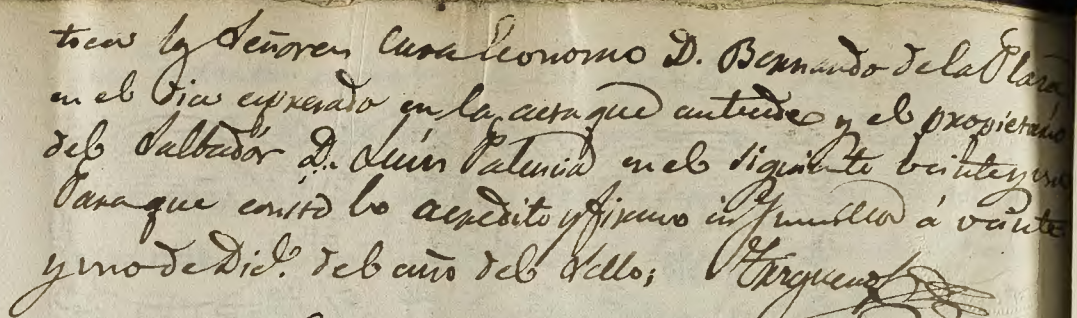 tica los Señores Cura Economo D. Bernando de la Plaza
en el dia expresado en la acta que antecede y el propietario
del Salbador D. Luis Palencia en el siguiente veinte y uno
Para que conste lo acredito y firmo en Jumilla á veinte
y uno de Dic.e del año del sello;